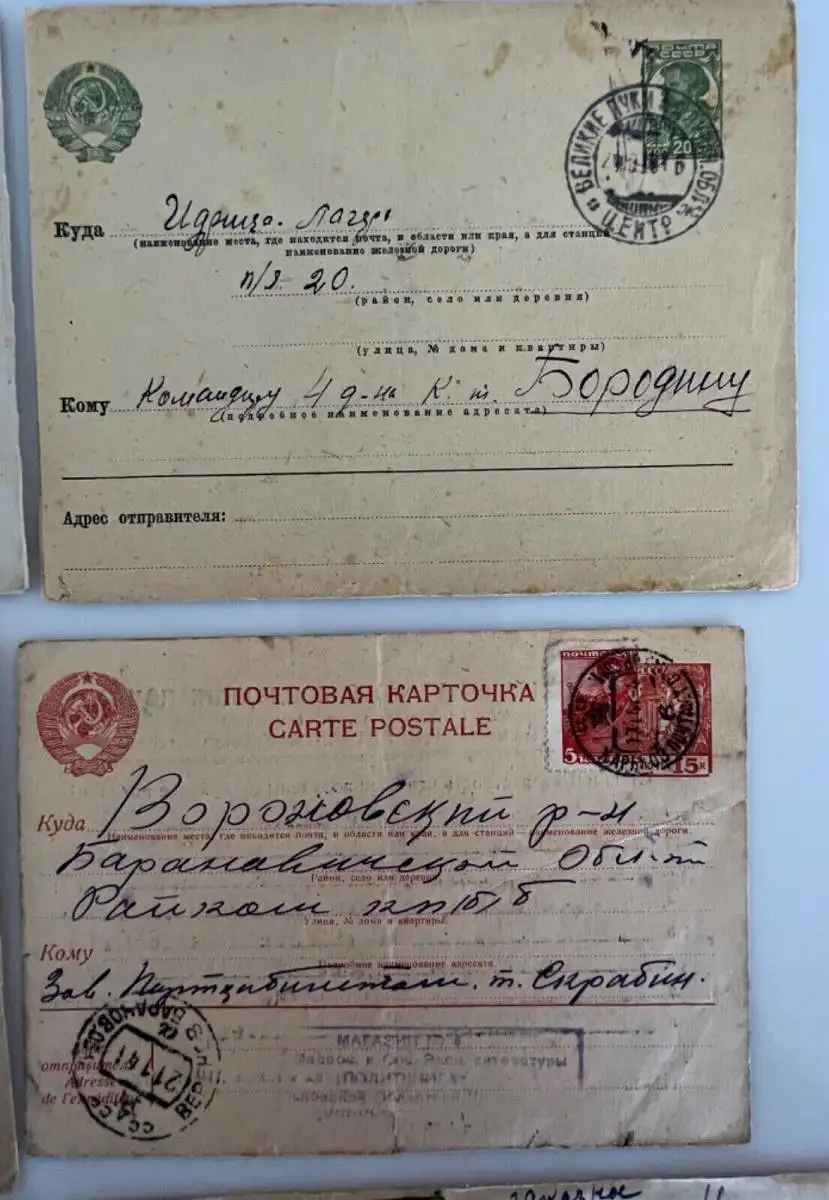 ПОЧТА
СССР
20
ВЕЛИКИЕ ЛУКИ
ЦЕНТР
Куда Идрица. Лагерь
(наименование места, где находится почта, и области или края, а для станций
наименование железной дороги)
п/я 20.
(район, село или деревня)
(улица, № дома и квартиры)
Кому Командиру 4 д-на К. т. Бородину
(подробное наименование адресата)
Адрес отправителя:
ПОЧТОВАЯ КАРТОЧКА
CARTE POSTALE
ПОЧТА
5
15 К
Куда Вороновский р-н
Наименование места, где находится почта, и области или края, а для станций — наименование железной дороги.
Барановичской Обл-ти
Район, село или деревня
Райком КП(б)Б
Улица, № дома и квартиры
Кому
Подробное наименование адресата.
Зав. Парткабинетом. т. Скрабин.
21 1 41
МАГАЗИН
литературы
отправителя
Adresse
de l'expéditeur